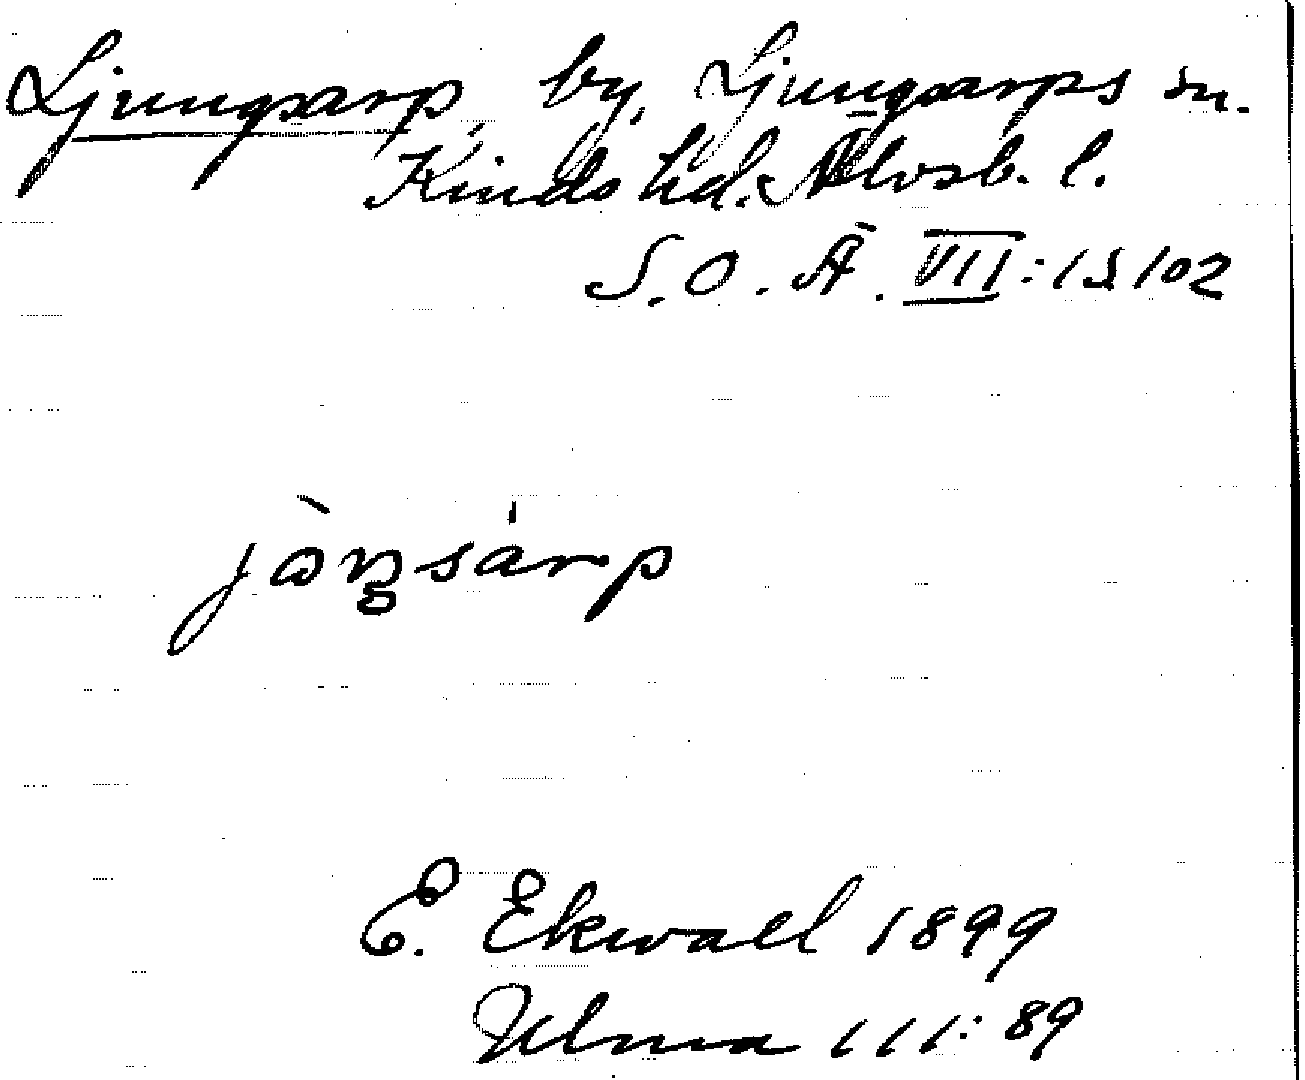 Ljungsarp, by, Ljungsarps sn.
Kinds hd. Älvsb. l.
S.O.Ä. VII:1 S 102
jòŋsárp
E. Ekwall 1899
Ulma 111:89